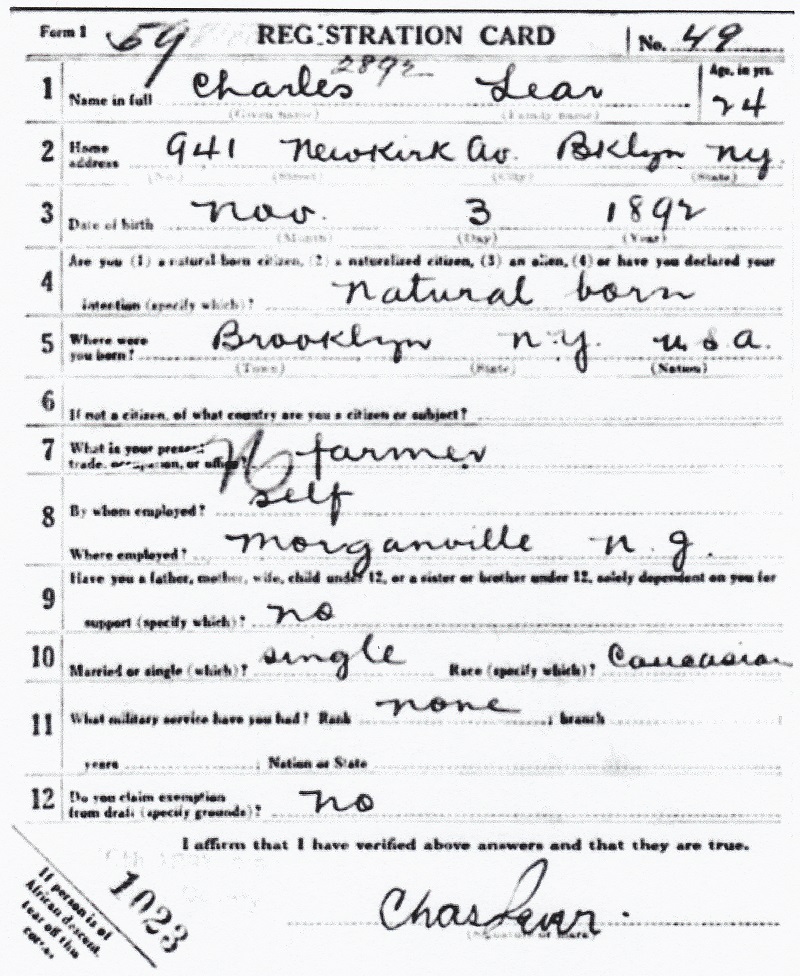 Form 1 59 REGISTRATION CARD No. 49
2892
1 Name in full Charles Lear Age, in yrs. 24
(Given name) (Family name)
2 Home address 941 Newkirk Av. Bklyn NY.
(No.) (Street) (City) (State)
3 Date of birth Nov. 3 1892
(Month) (Day) (Year)
4 Are you (1) a natural born citizen, (2) a naturalized citizen, (3) an alien, (4) or have you declared your
intention (specify which)? natural born
5 Where were you born? Brooklyn N.Y. U S A.
(Town) (State) (Nation)
6 If not a citizen, of what country are you a citizen or subject?
7 What is your present trade, occupation, or office? farmer
8 By whom employed? self
Where employed? Morganville N. J.
9 Have you a father, mother, wife, child under 12, or a sister or brother under 12, solely dependent on you for
support (specify which)? no
10 Married or single (which)? single Race (specify which)? Caucasian
11 What military service have you had? Rank none ; branch
years ; Nation or State
12 Do you claim exemption from draft (specify grounds)? no
I affirm that I have verified above answers and that they are true.
Chas Lear.
(Signature or mark)
If person is of
African descent,
tear off this
corner.
1023